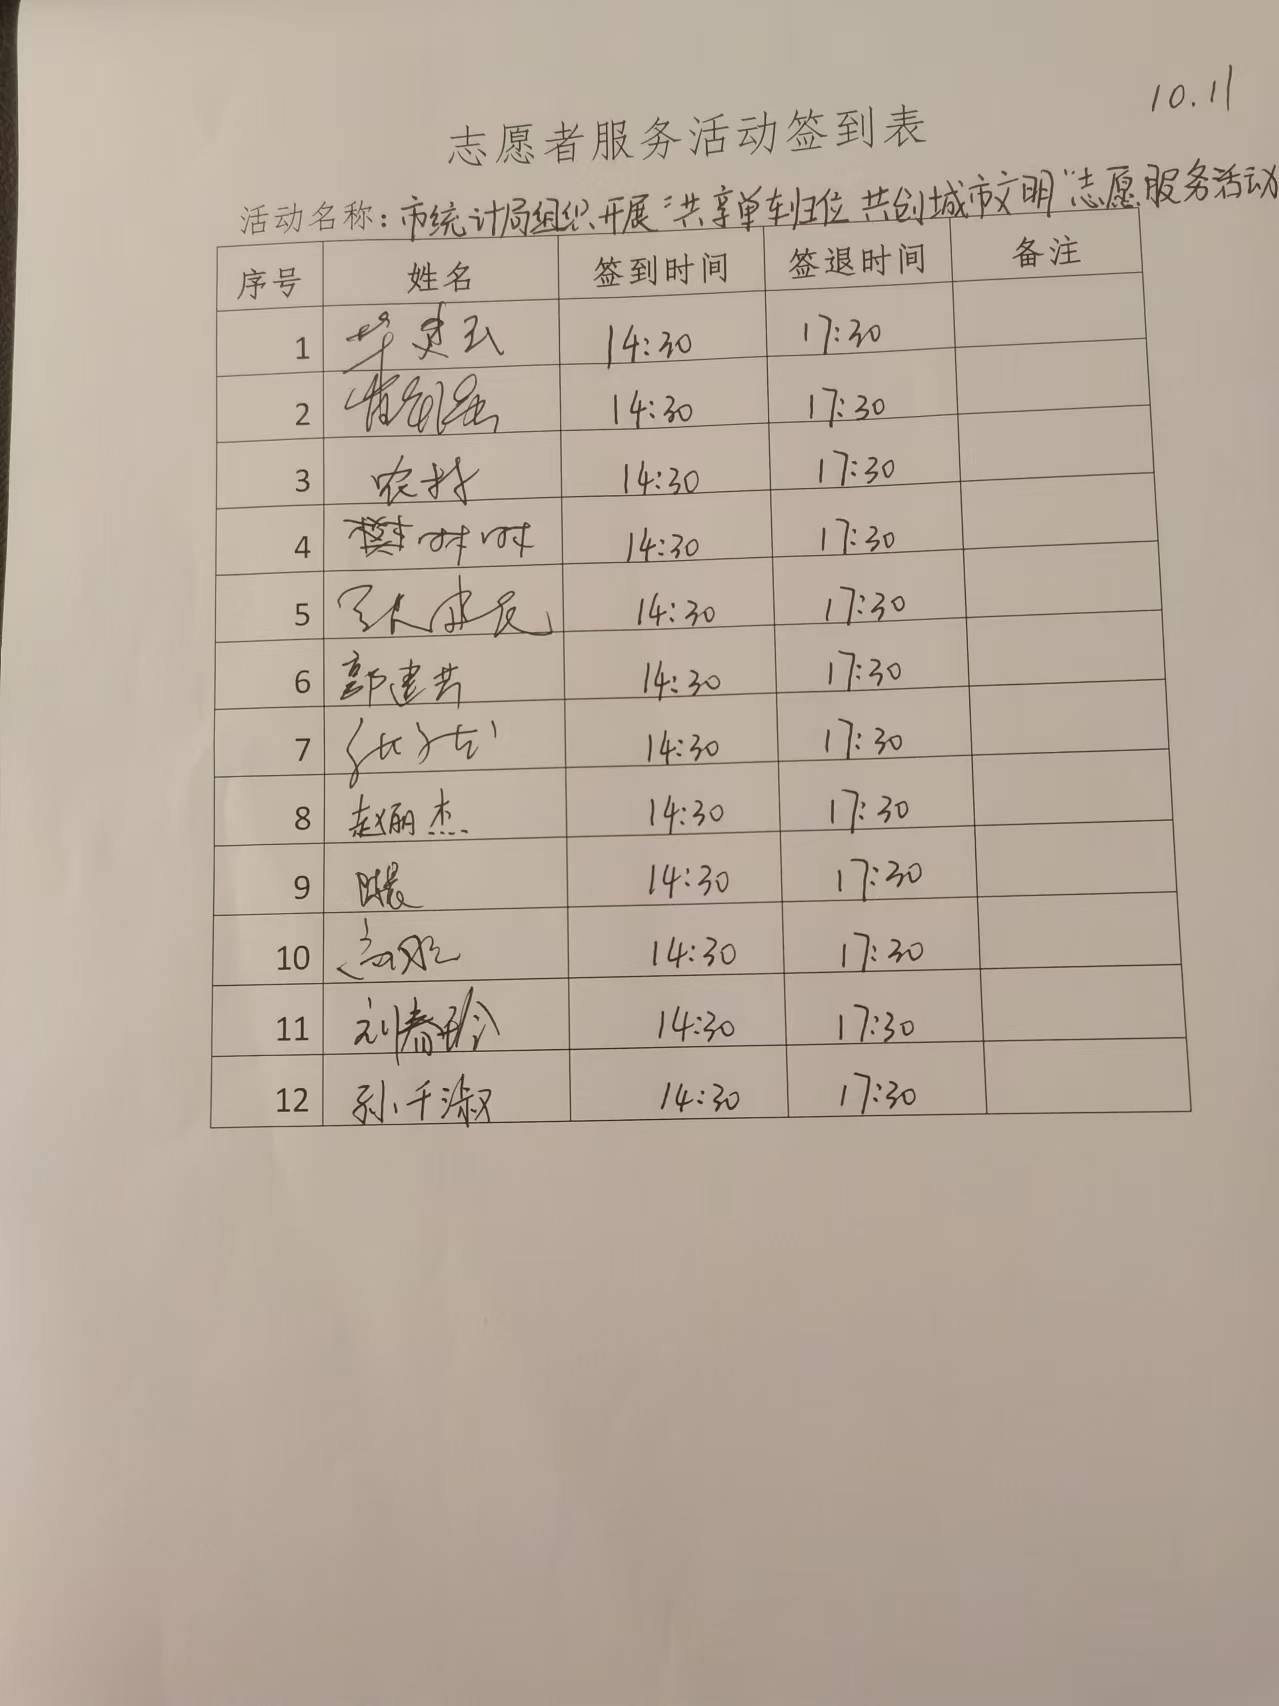 10.11
志愿者服务活动签到表
活动名称：市统计局组织开展“共享单车归位 共创城市文明”志愿服务活动
序号 姓名 签到时间 签退时间 备注
1 14:30 17:30
2 14:30 17:30
3 农村 14:30 17:30
4 樊叶叶 14:30 17:30
5 14:30 17:30
6 郭建芳 14:30 17:30
7 14:30 17:30
8 赵丽杰 14:30 17:30
9 14:30 17:30
10 14:30 17:30
11 刘春玲 14:30 17:30
12 孙千淑 14:30 17:30